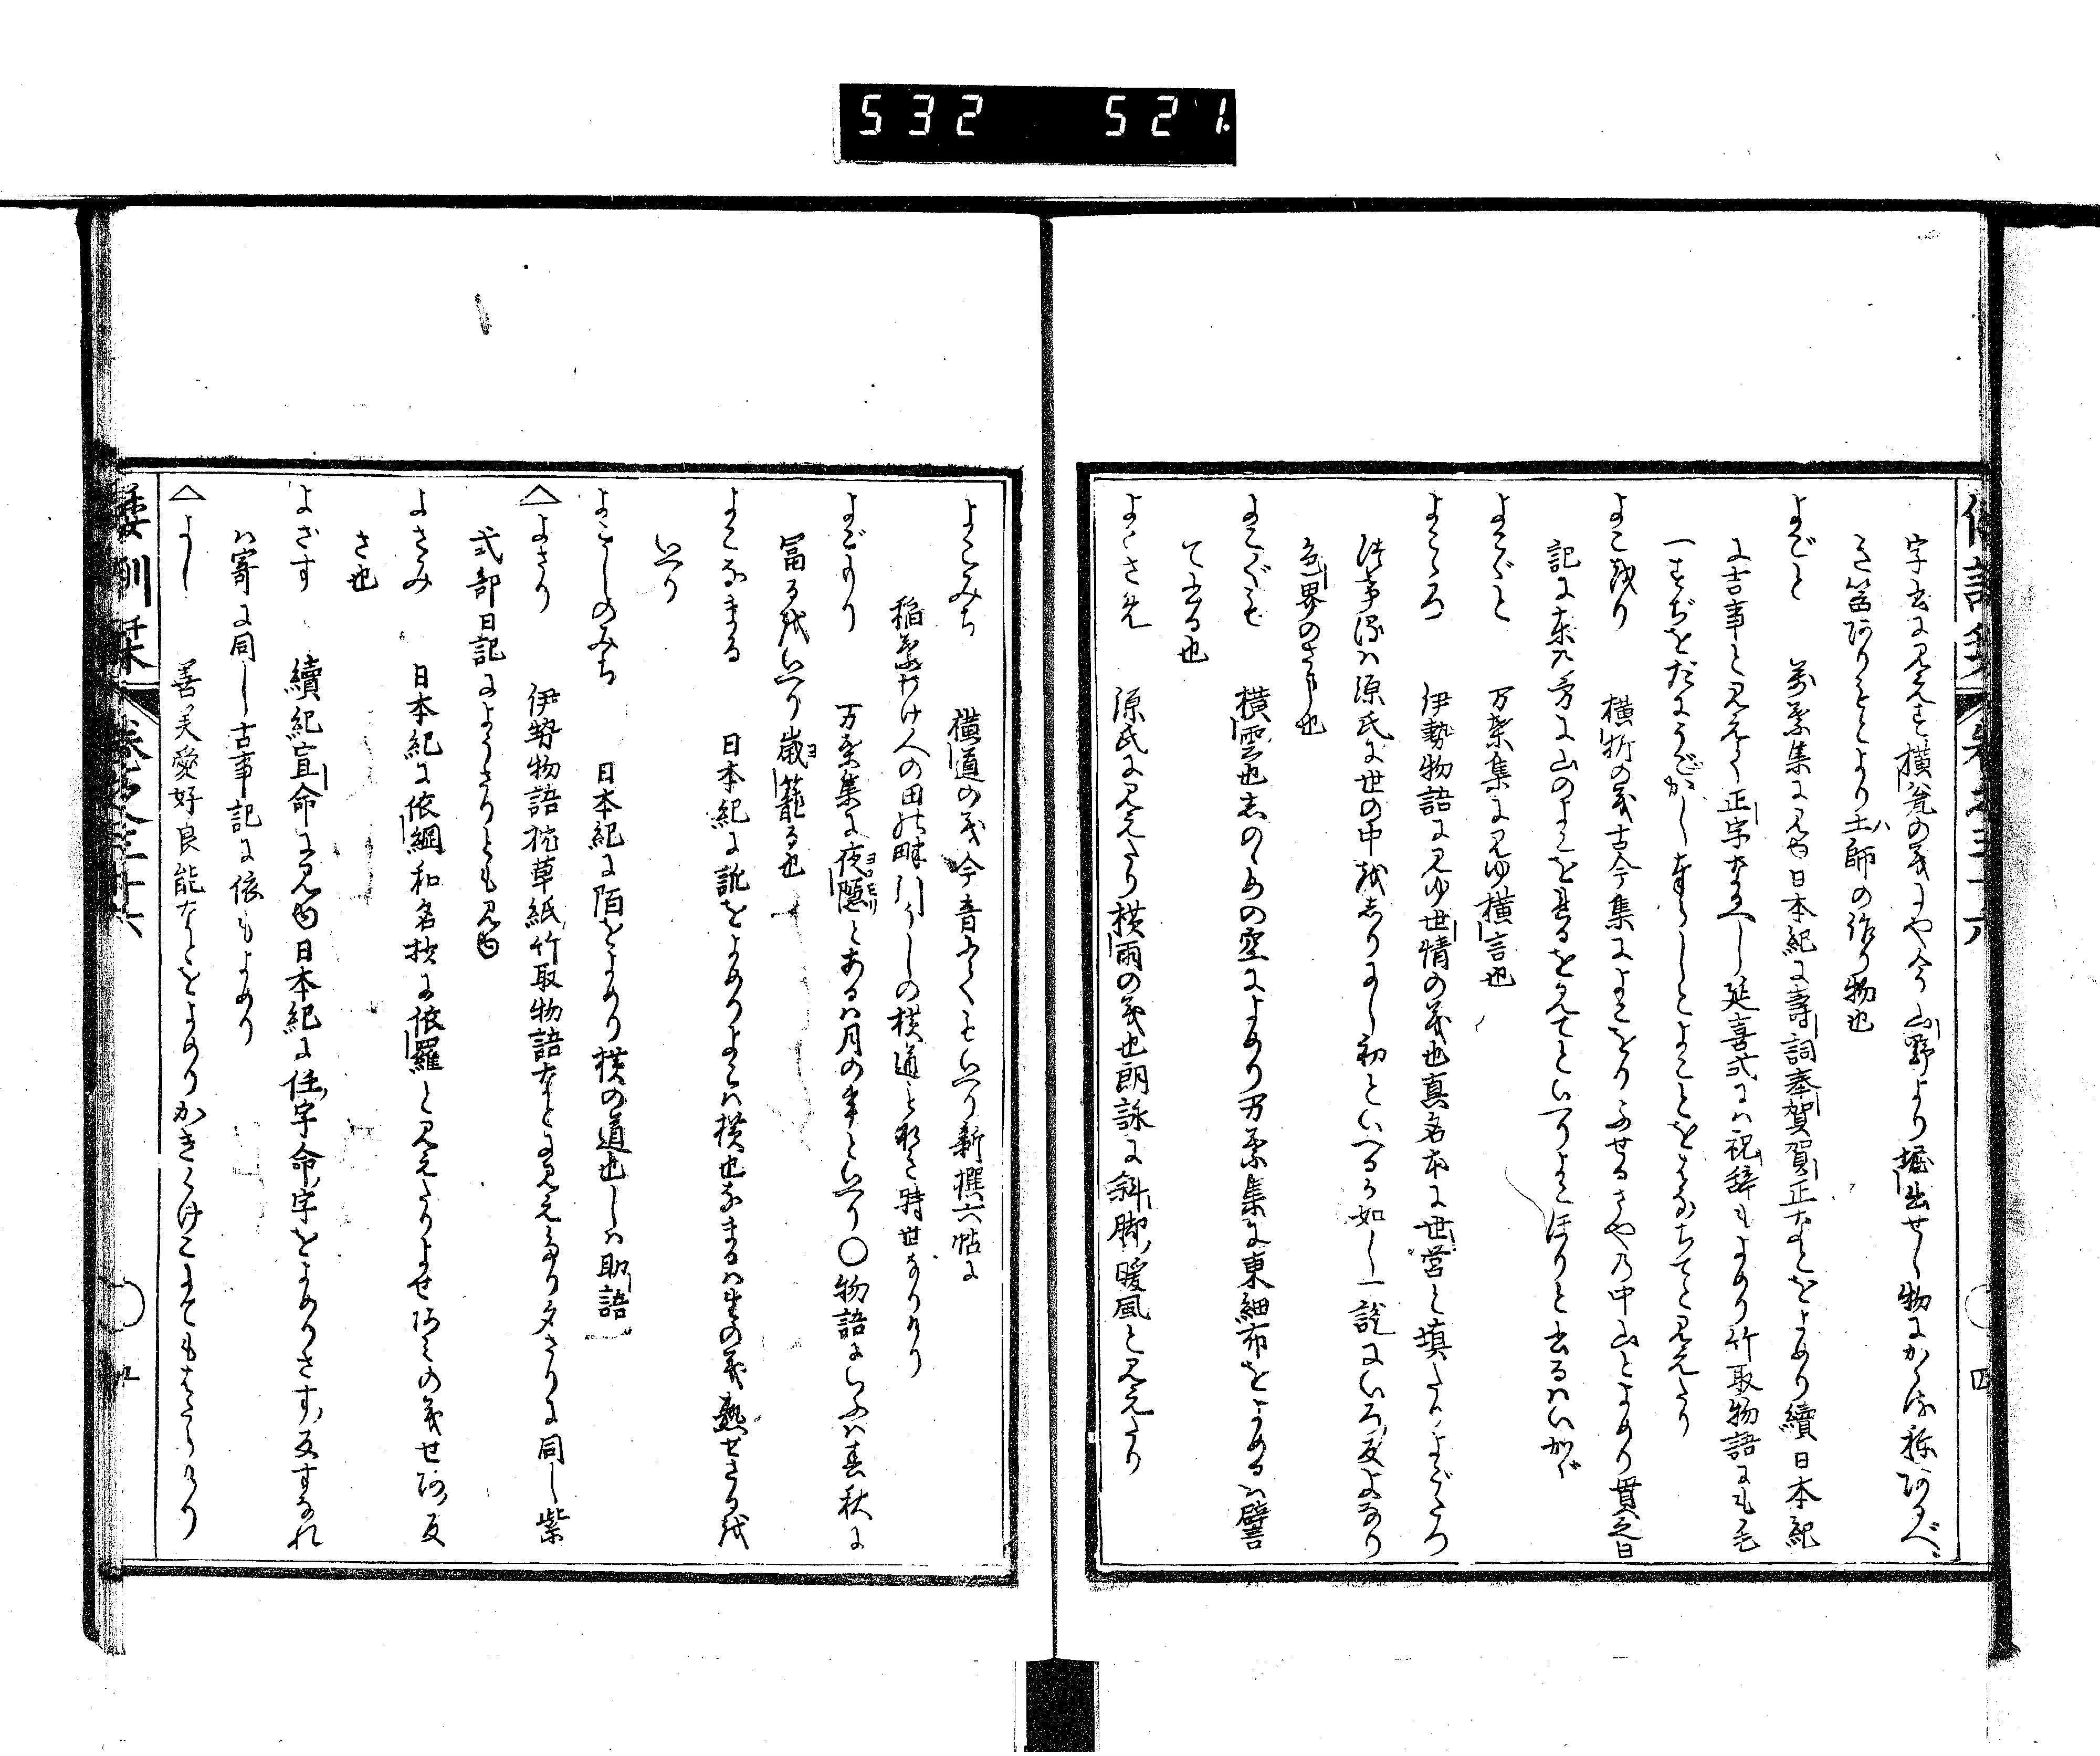 532 521.
字書に見えす横瓮の義にや今山野より堀出せし物にかゝる称あるべし
土師の作り物也
よごと 萬葉集に見ゆ日本紀に壽詞奉賀賀正なとをよめり續日本紀
に吉事と見えて正字なるへし延喜式には祝辞もよめり竹取物語にも毛
一すぢをだにうごかし奉らしとよことをはなちてと見えたり
よこをり 横折の義古今集によこをりふせるさや乃中山とよめり貫之日
記に東の方に山のよこをれるを見てといへりよこほりと書るはいかゞ
よこごと 万葉集に見ゆ横言也
よこゝろ 伊勢物語に見ゆ世情の義也真名本に世営と填たりよごゝろ
源氏に世の中をしりそめし初といへるか如し一説にいろ反よなり
色界のさま也
よこぐも 横雲也しのゝめの空によめり万葉集に東細布をよめるは譬
て書る也
よこさめ 源氏に見えたり横雨の義也朗詠に斜脚暖風と見えたり
よこみち 横道の義今音ふくてもいへり新撰六帖に
稲葉わけ人の田の畔引うしの横道となる時世なりけり
よごもり 万葉集に夜隠とあるは月の事といへり〇物語にいふは春秋に
冨るをいへり歳籠る也
よこなまる 日本紀に訛をよめりよこは横也なまるは生の義熟せさるを
いへり
よこしのみち 日本紀に陌をよめり横の道也しは助語
△よさり 伊勢物語枕草紙竹取物語なとに見えたり夕さりに同し紫
式部日記にようさりとも見ゆ
よさみ 日本紀に依網和名抄に依羅と見えたりよせあみの義せあ反
さ也
よざす 續紀宣命に見ゆ日本紀に任字命字をよめりさす反すなれ
は寄に同し古事記に依もよめり
△よし 善美愛好良能なとをよめりかきくけこまてもはたらけり
倭訓栞 巻之三十六